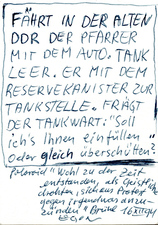 FÄHRT IN DER ALTEN
DDR DER PFARRER
MIT DEM AUTO. TANK
LEER. ER MIT DEM
RESERVEKANISTER ZUR
TANKSTELLE. FRÄGT
DER TANKWART: "Soll
ich's Ihnen einfüllen
oder gleich überschütten?"
Wohl zu der Zeit
entstanden, als Geistliche
drohten, sich aus Protest
gegen irgendwas anzu-
zünden"